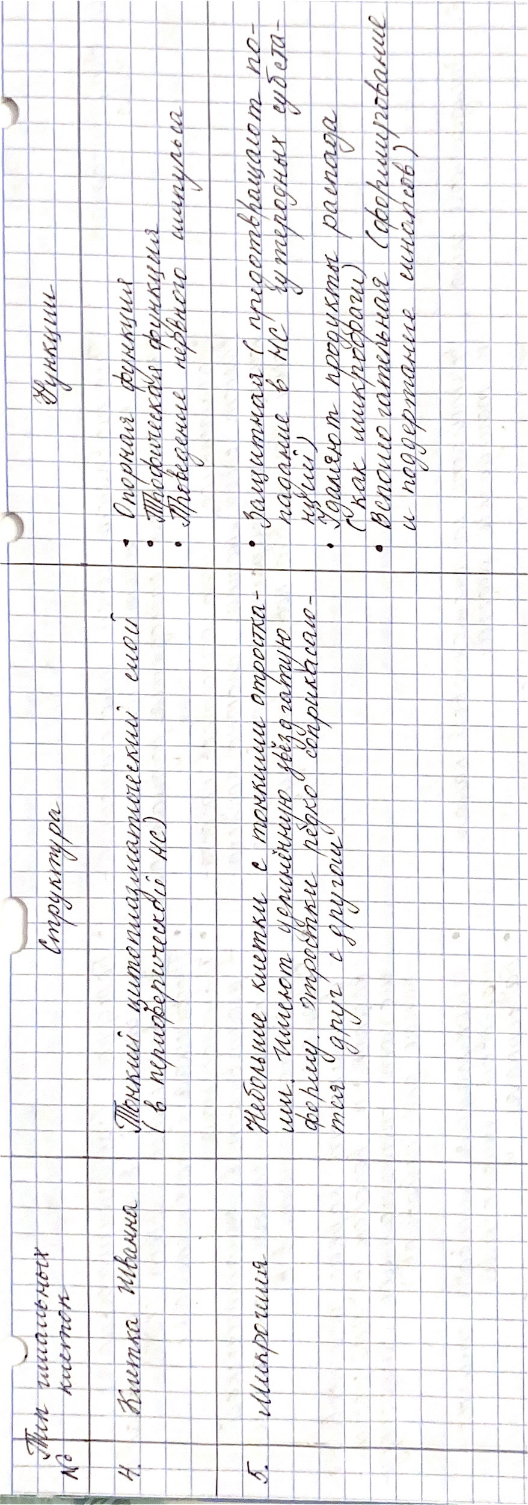 № Тип глиальных клеток
Структура
Функции
4. Клетка Шванна
Тонкий цитоплазматический слой
(в периферической НС)
• Опорная функция
• Трофическая функция
• Проведение нервного импульса
5. Микроглия
Небольшие клетки с тонкими отростка-
ми. имеют удлинённую звёздчатую
форму. отростки редко соприкасаю-
тся друг с другом
• Защитная (предотвращают по-
падание в НС чужеродных субста-
нций)
• Удаляют продукты распада
(как микрофаги)
• Вспомогательная (формирование
и поддержание синапсов)